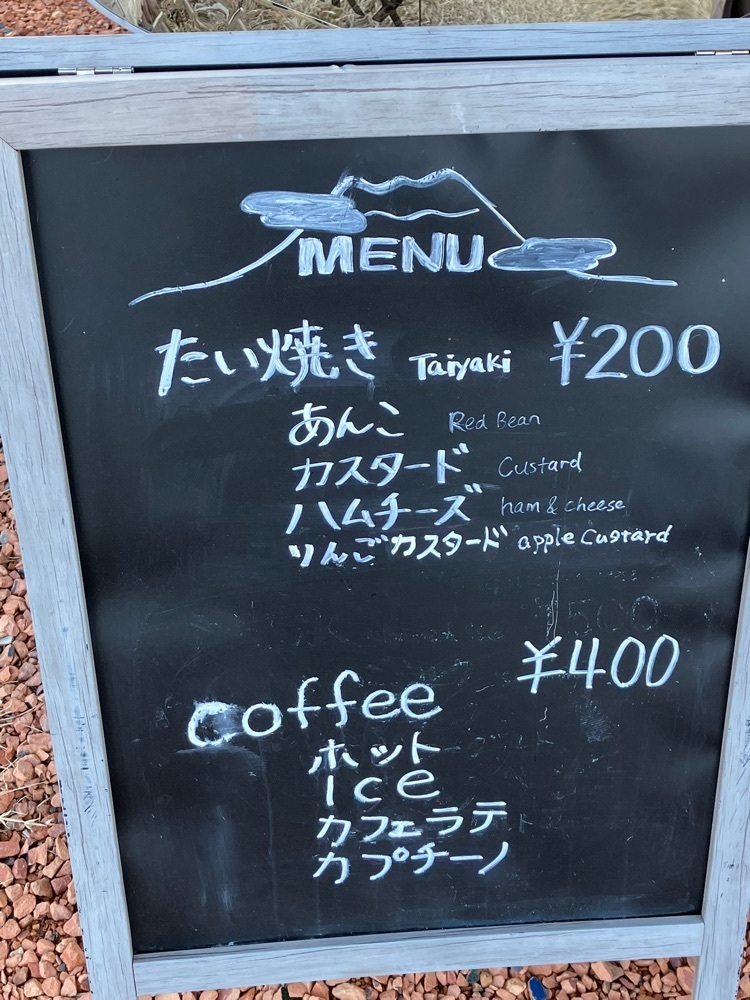 MENU
たい焼き Taiyaki ¥200
あんこ Red Bean
カスタード Custard
ハムチーズ ham & cheese
りんごカスタード apple Custard
¥400
Coffee
ホット
Ice
カフェラテ
カプチーノ